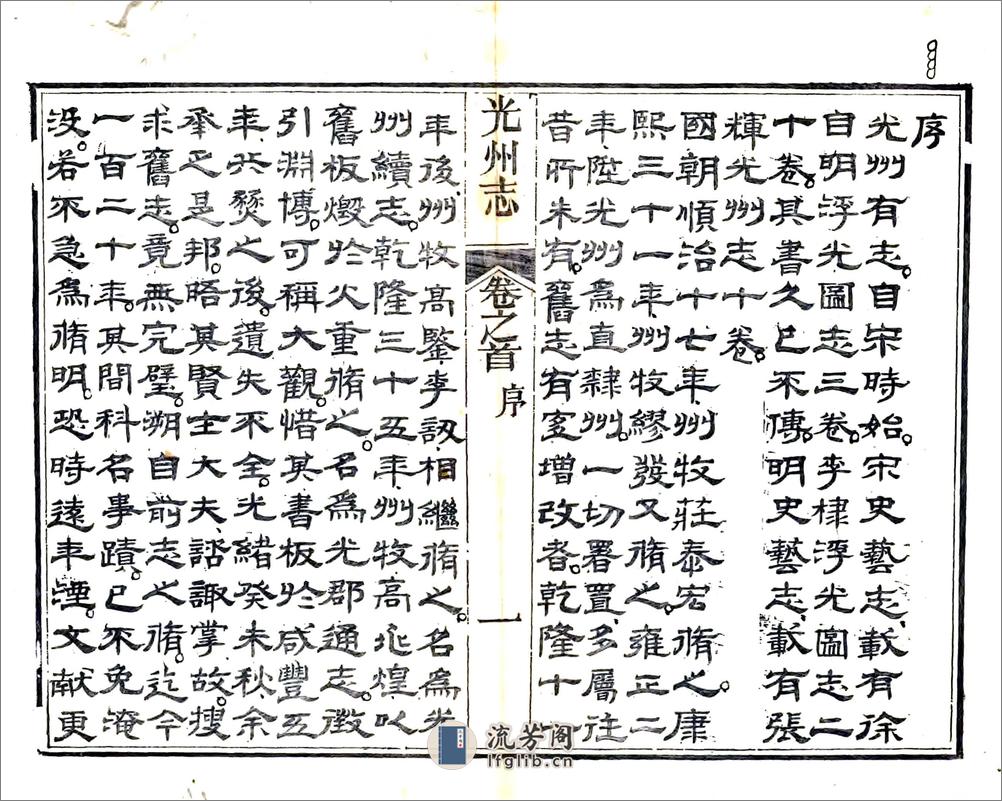 序
光州有志。自宋時始。宋史藝志、載有徐
自明浮光圖志三卷。李棣浮光圖志二
十卷。其書久已不傳。明史藝志、載有張
輝光州志十卷。
國朝順治十七年、州牧莊泰宏脩之。康
熙三十一年、州牧繆發又脩之。雍正二
年、陞光州為直隸州。一切署置、多屬往
昔所未有。舊志有宜增改者。乾隆十
光州志 卷之首 序 一
年後、州牧高鑒、李訒、相繼脩之。名為光
州續志。乾隆三十五年、州牧高兆煌、以
舊板燬於火重脩之。名為光郡通志。徵
引淵博。可稱大觀。惜其書板於咸豐五
年、共燹之後。遺失不全。光緒癸未秋、余
承乏是邦。晤其賢士大夫、諮諏掌故。搜
求舊志。竟無完璧。溯自前志之脩。迄今
一百二十年。其間科名事蹟。已不免淹
没。若不急為脩明。恐時遠年湮。文献更
流芳阁
lfglib.cn